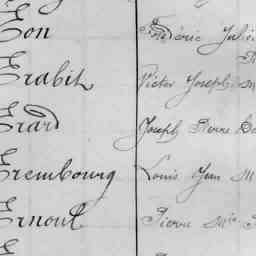 Eon Frédéric Julie
Erabit Victor Joseph M
Erard Joseph Pierre
Erembourg Louis Jean M
Ernoul Pierre Mie